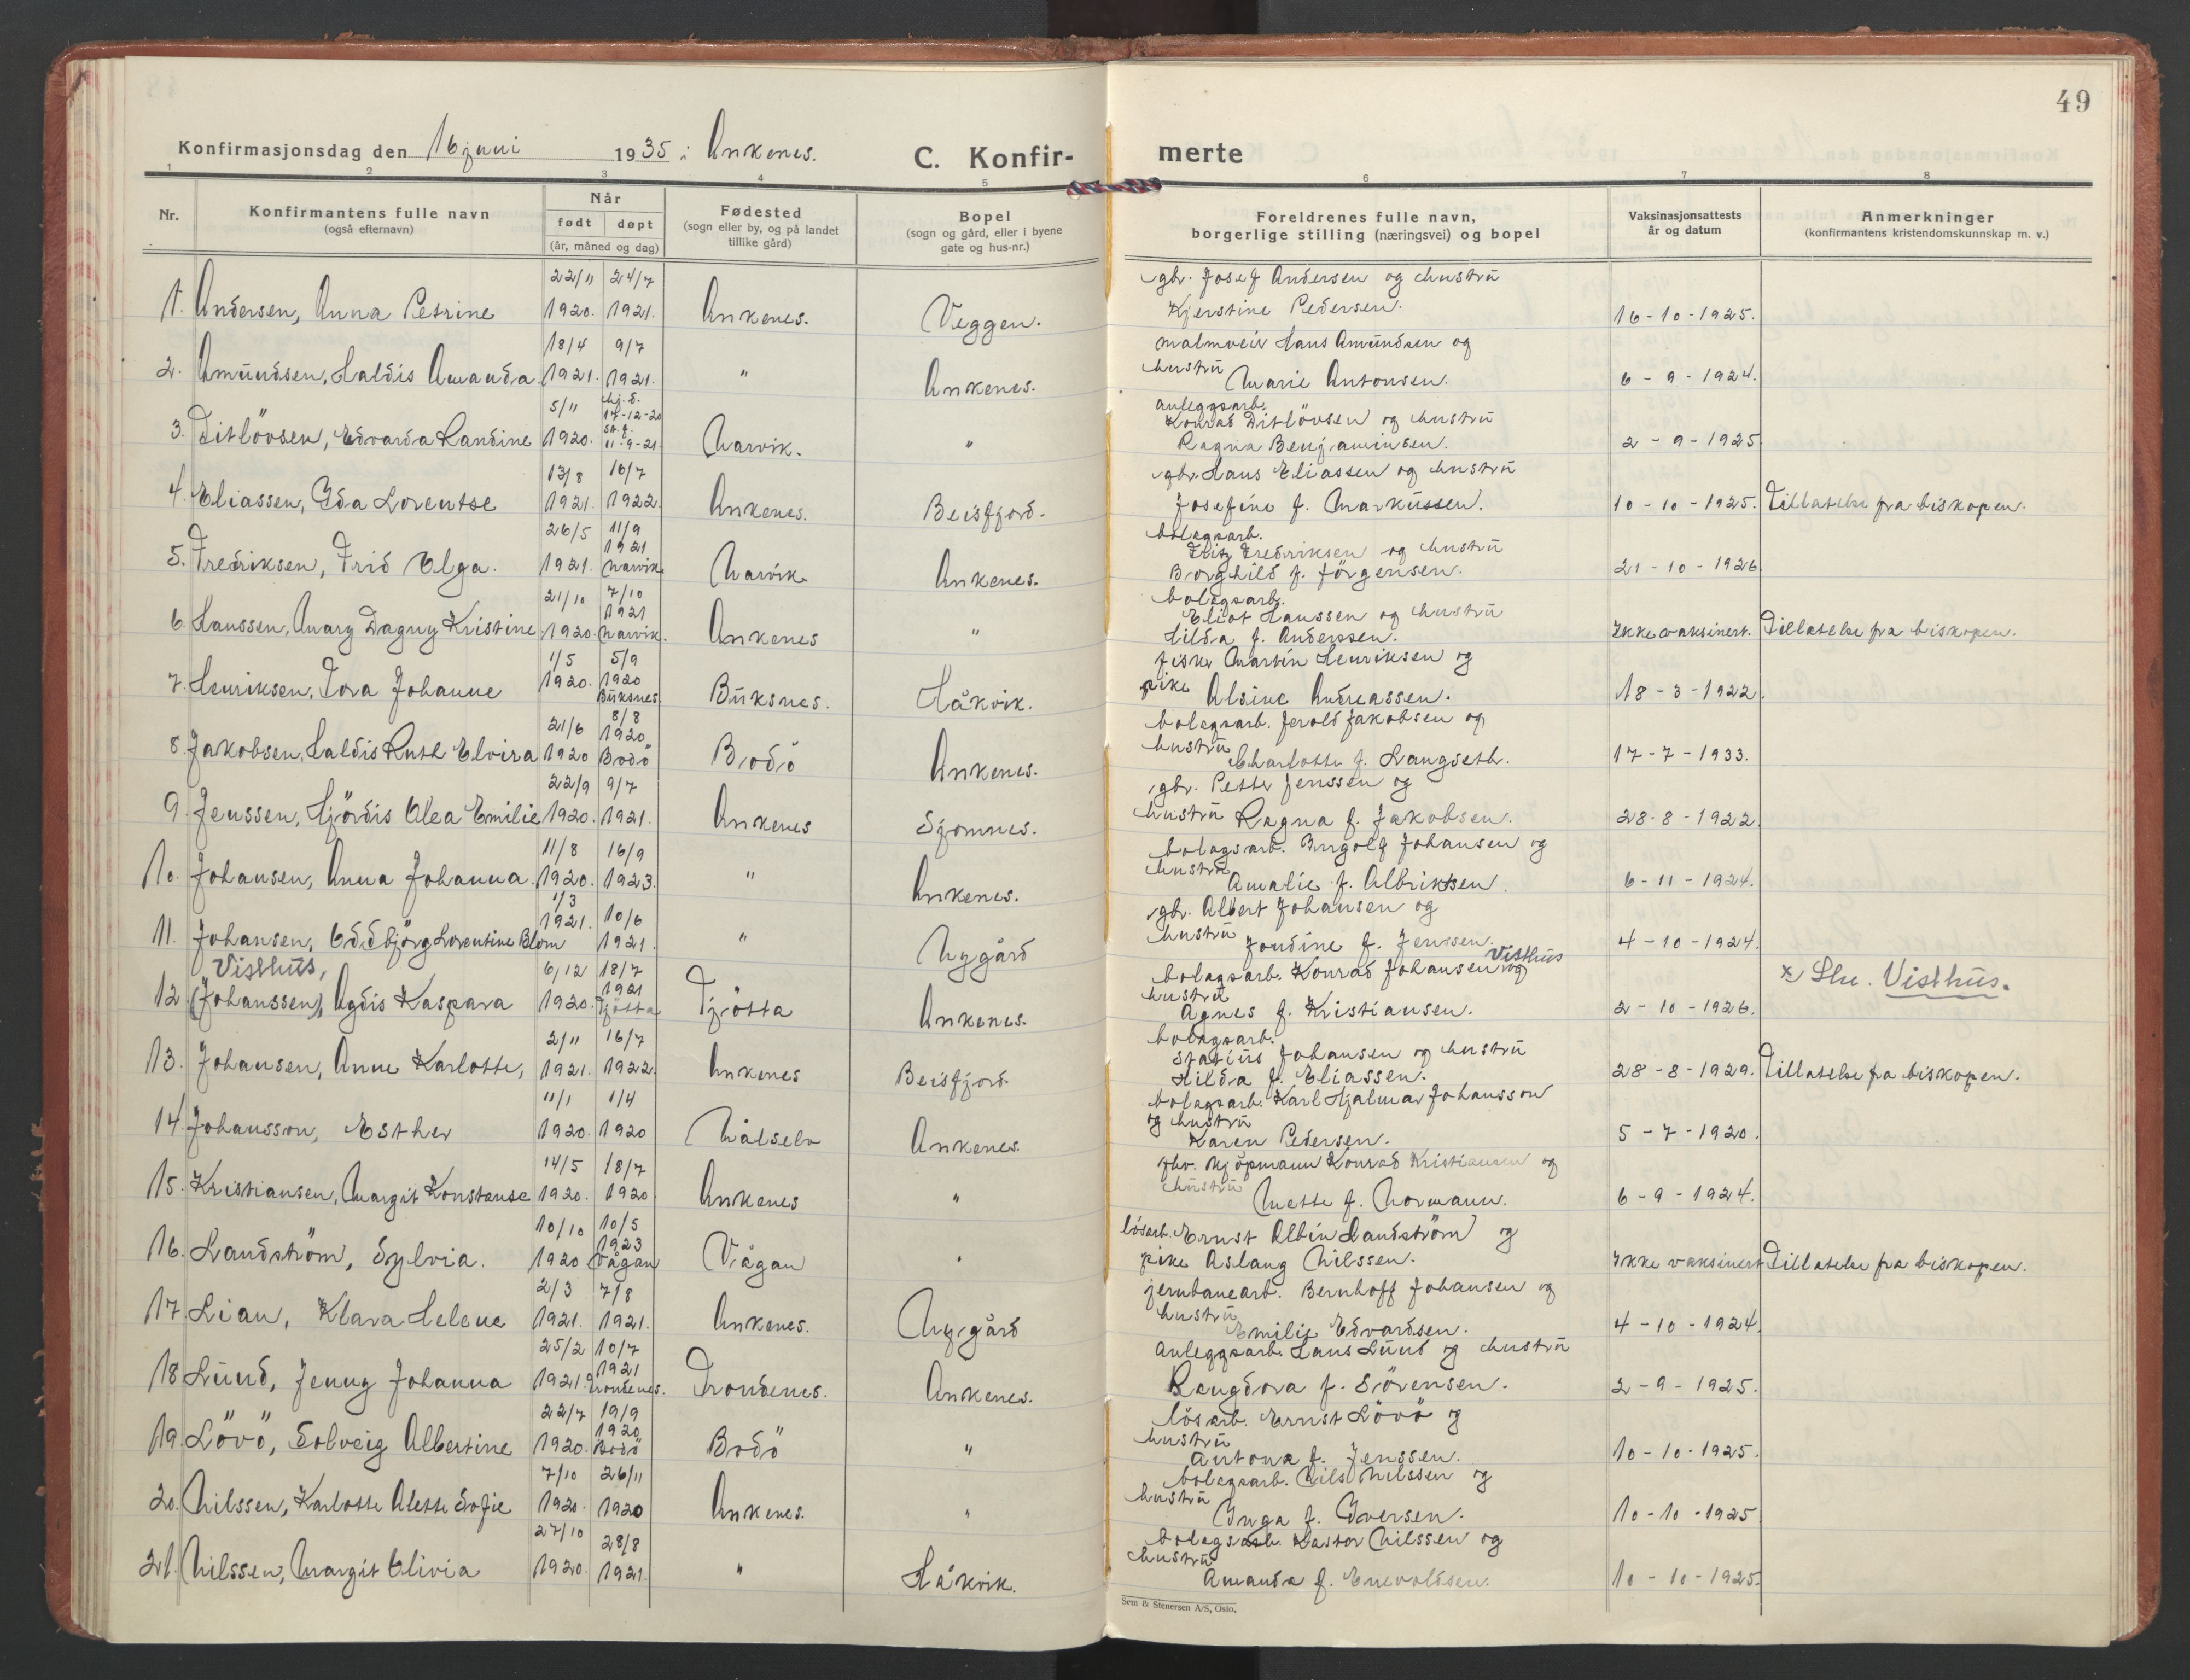 49
Konfirmasjonsdag den 16 juni 1935 i Ankenes.
C. Konfir-
merte
1 2 3 4 5 6 7 8
Nr.
Konfirmantens fulle navn
(også efternavn)
Når
født døpt
(år, måned og dag)
Fødested
(sogn eller by, og på landet
tillike gård)
Bopel
(sogn og gård, eller i byene
gate og hus-nr.)
Foreldrenes fulle navn,
borgerlige stilling (næringsvei) og bopel
Vaksinasjonsattests
år og datum
Anmerkninger
(konfirmantens kristendomskunnskap m. v.)
22/11 24/7 gbr. Josef Andersen og hustrü
1. Andersen, Anna Petrine 1920. 1921. Ankenes. Veggen. Kjerstine Pedersen. 16-10-1925.
18/4 9/7 malmveier Hans Amündsen og
2. Amündsen, Haldis Amanda. 1921. 1921. " Ankenes. hustrü Marie Antonsen. 6-9-1924.
5/11 hj.d. 17-12-20 anleggsarb. Konrad Ditlövsen og hustrü
3. Ditlövsen, Edvarda Randine 1920. 11-9-21. Narvik. " Ragna Benjaminsen. 2-9-1925
13/8 16/7 gbr. Hans Eliassen og hustrü
4. Eliassen, Ida Lorentse 1921. 1922. Ankenes. Beisfjord. Josefine f. Markussen. 10-10-1925. Tillatelse fra biskopen.
26/5 11/9 bolagsarb. Fritz Fredriksen og hustrü
5. Fredriksen, Frid Olga. 1921. 1921 Narvik. Narvik. Ankenes. Borghild f. Jörgensen. 21-10-1926.
21/10 7/10 bolagsarb. Eliot Hanssen og hustrü
6. Hanssen, Mary Dagny Kristine. 1920. 1921 Narvik. Ankenes " Hilda f. Anderssen. Ikke vaksinert. Tillatelse fra biskopen.
1/5 5/9 fisker Martin Henriksen og
7. Henriksen, Tora Johanne 1920. 1920 Büksnes. Büksnes. Håkvik. pike Alsine Andreassen. 18-3-1922.
21/6 8/8 bolagsarb. Jerold Jakobsen og
8. Jakobsen, Haldis Ruth Elvira 1920 1920 Bodö Bodö Ankenes. hustrü Charlotte f. Langseth. 17-7-1933.
22/9 9/7 gbr. Petter Jenssen og
9. Jenssen, Hjördis Olea Emilie 1920. 1921. Ankenes Sjomnes. hustrü Ragna f. Jakobsen. 28-8-1922.
11/8 16/9 bolagsarb. Ingolf Johansen og
10. Johansen, Anna Johanna. 1920. 1923. " Ankenes. hustrü Amalie f. Albriktsen. 6-11-1924.
1/3 10/6 gbr. Albert Johansen og
11. Johansen, Oddbjörg Lorentine Blom 1921. 1921. " Nygård hustrü Jondine f. Jenssen. 4-10-1924.
Visthüs, 6/12 18/7 bolagsarb. Konrad Johansen Visthüs og
12. (Johanssen), Agdis Kaspara 1920. 1921 Tjötta Tjötta Ankenes. hustrü Agnes f. Kristiansen. 2-10-1926. x Visthüs.
2/11 16/7 bolagsarb. Statius Johansen og hustrü
13. Johansen, Anne Karlotte, 1921. 1922. Ankenes Beisfjord. Hilda f. Eliassen. 28-8-1929. Tillatelse fra biskopen.
11/1 1/4 bolagsarb. Karl Hjalmar Johansson
14. Johansson, Esther 1920. 1920 Målselv Ankenes. og hustrü Karen Pedersen. 5-7-1920.
14/5 18/7 fhv. kjöpmann Konrad Kristiansen og
15. Kristiansen, Margit Konstanse 1920. 1920 Ankenes " hustrü Mette f. Normann. 6-9-1924.
10/10 10/5 lösarb. Ernst Albin Landström og
16. Landström, Sylvia. 1920 1923 Vågan Vågan " pike Aslaug Nilssen. Ikke vaksinert Tillatelse fra biskopen.
2/3 7/8 jernbanearb. Bernhoff Johansen og
17. Lian, Klara Helene 1921. 1921. Ankenes. Nygård hustrü Emilie Edvardsen. 4-10-1924.
25/2 10/7 Anleggsarb. Hans Lünd og hustrü
18. Lünd, Jenny Johanna 1921. 1921 Trondenes. Trondenes. Ankenes. Rangdora f. Sörensen. 2-9-1925.
22/7 19/9 lösarb. Ernst Lövö og
19. Lövö, Solveig Albertine 1920. 1920 Bodö Bodö " hustrü Antona f. Jenssen. 10-10-1925.
7/10 26/11 bolagsarb. Nils Nilssen og
20. Nilssen, Karlotte Alette Sofie 1920. 1920 Ankenes. " hustrü Inga f. Iversen. 10-10-1925
27/10 28/8 bolagsarb. Kastor Nilssen og
21. Nilssen, Margit Olivia 1920. 1921. " Håkvik. hustrü Amanda f. Enevoldsen. 10-10-1925.
Sem & Stenersen A/S, Oslo.